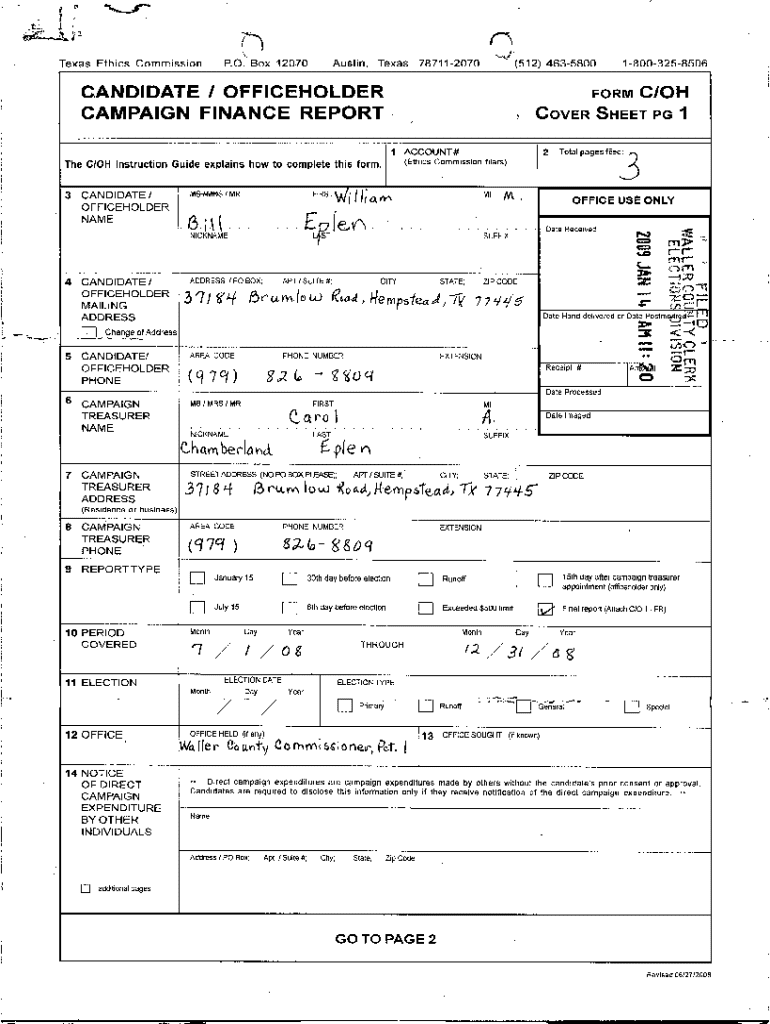 Texas Ethics Commission P.O. Box 12070 Austin, Texas 78711-2070 (512) 463-5800 1-800-325-8506
CANDIDATE / OFFICEHOLDER
CAMPAIGN FINANCE REPORT
FORM C/OH
COVER SHEET PG 1
The C/OH Instruction Guide explains how to complete this form.
1 ACCOUNT #
(Ethics Commission filers)
2 Total pages filed:
3
3 CANDIDATE /
OFFICEHOLDER
NAME
MS / MRS / MR FIRST William MI M.
Bill Eplen
NICKNAME LAST SUFFIX
OFFICE USE ONLY
Date Received
FILED
WALLER COUNTY CLERK
ELECTIONS DIVISION
2009 JAN 14 AM 11:20
4 CANDIDATE /
OFFICEHOLDER
MAILING
ADDRESS
Change of Address
ADDRESS / PO BOX; APT / SUITE #; CITY STATE; ZIP CODE
37184 Brumlow Road, Hempstead, TX 77445
Date Hand delivered or Date Postmarked
5 CANDIDATE/
OFFICEHOLDER
PHONE
AREA CODE PHONE NUMBER EXTENSION
(979) 826 - 8809
Receipt # Amount
Date Processed
Date Imaged
6 CAMPAIGN
TREASURER
NAME
MS / MRS / MR FIRST MI
Carol A.
NICKNAME LAST SUFFIX
Chamberland Eplen
7 CAMPAIGN
TREASURER
ADDRESS
(Residence or business)
STREET ADDRESS (NO PO BOX PLEASE); APT / SUITE #; CITY; STATE; ZIP CODE
37184 Brumlow Road, Hempstead, TX 77445
8 CAMPAIGN
TREASURER
PHONE
AREA CODE PHONE NUMBER EXTENSION
(979 ) 826- 8809
9 REPORT TYPE
January 15 30th day before election Runoff 15th day after campaign treasurer
appointment (officeholder only)
July 15 8th day before election Exceeded $500 limit Final report (Attach C/OH - FR)
10 PERIOD
COVERED
Month Day Year
7 / 1 / 08
THROUGH
Month Day Year
12 / 31 / 08
11 ELECTION
ELECTION DATE
Month Day Year
/ /
ELECTION TYPE
Primary Runoff General Special
12 OFFICE
OFFICE HELD (if any)
Waller County Commissioner, Pct. 1
13 OFFICE SOUGHT (if known)
14 NOTICE
OF DIRECT
CAMPAIGN
EXPENDITURE
BY OTHER
INDIVIDUALS
additional pages
** Direct campaign expenditures are campaign expenditures made by others without the candidate's prior consent or approval.
Candidates are required to disclose this information only if they receive notification of the direct campaign expenditure. **
Name
Address / PO Box; Apt / Suite #; City; State; Zip Code
GO TO PAGE 2
Revised 06/27/2008